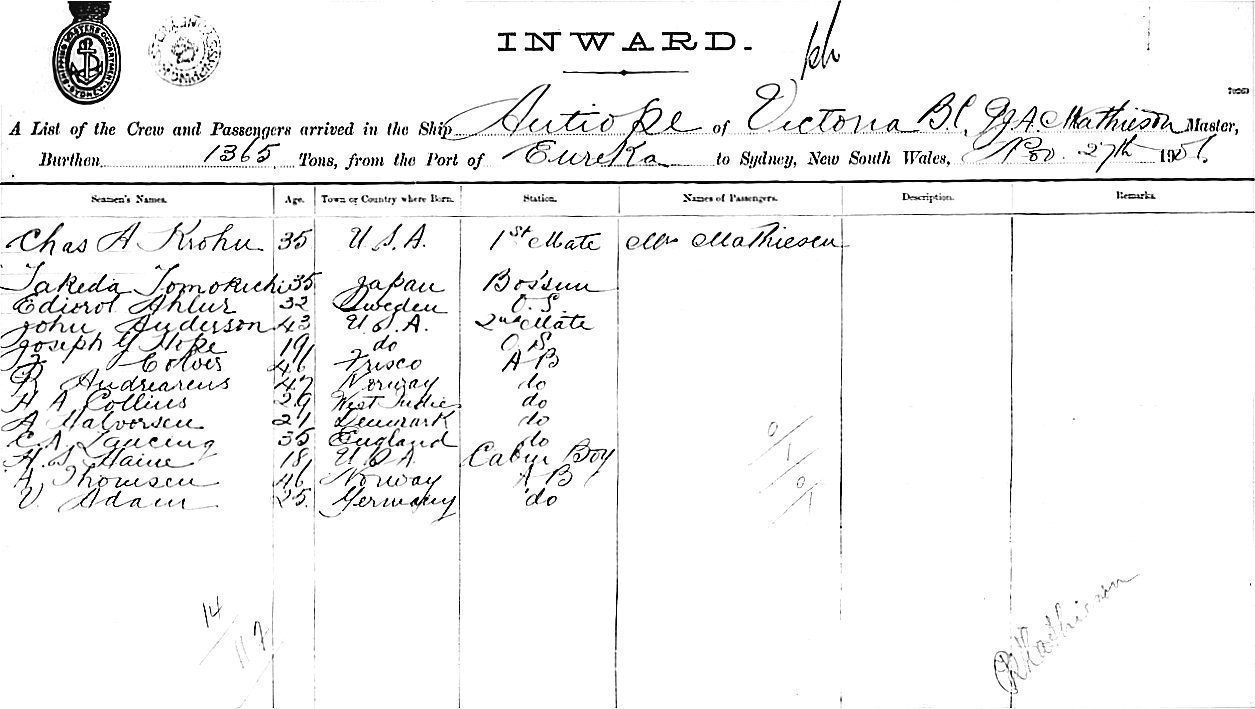 SHIPPING MASTERS DEPARTMENT SYDNEY
INWARD.
A List of the Crew and Passengers arrived in the Ship Antiope of Victoria B.C, A. Mathieson Master,
Burthen 1365 Tons, from the Port of Eureka to Sydney, New South Wales, 27th 190
Seamen's Names. Age. Town or Country where Born. Station. Names of Passengers. Description. Remarks.
Chas A Krohn 35 U.S.A. 1st Mate Mrs Mathiesen
Takeda Tomokichi 35 Japan Bos'sun
Ahlur 32 Sweden O.S.
John Anderson 43 U.S.A. 2nd Mate
Joseph G Hope 19 do O S
Colves 46 Frisco A B
Andrearcus 47 Norway do
H A Collins 29 West Indies do
A Halvorsen 21 Denmark do
C. A. Lancing 35 England do
H. S. Haine 18 U S A Cabin Boy
A. Thomsen 46 Norway A B
V. Adam 25. Germany do
14
117
Mathieson